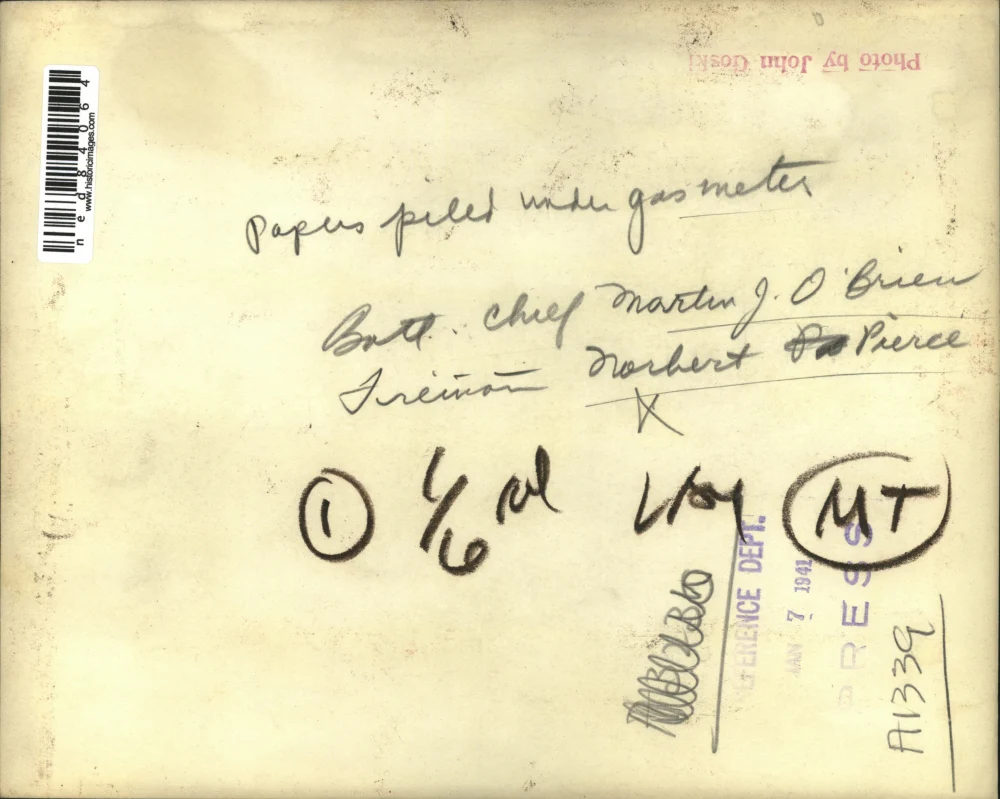 Photo by John Goski
ned84064
www.historicimages.com
Papers piled under gas meter
Batt. Chief Martin J. O'Brien
Fireman Norbert Pierce
X
1 1/6 MT
ERENCE DEPT.
JAN 7 1941
PRESS
A1339